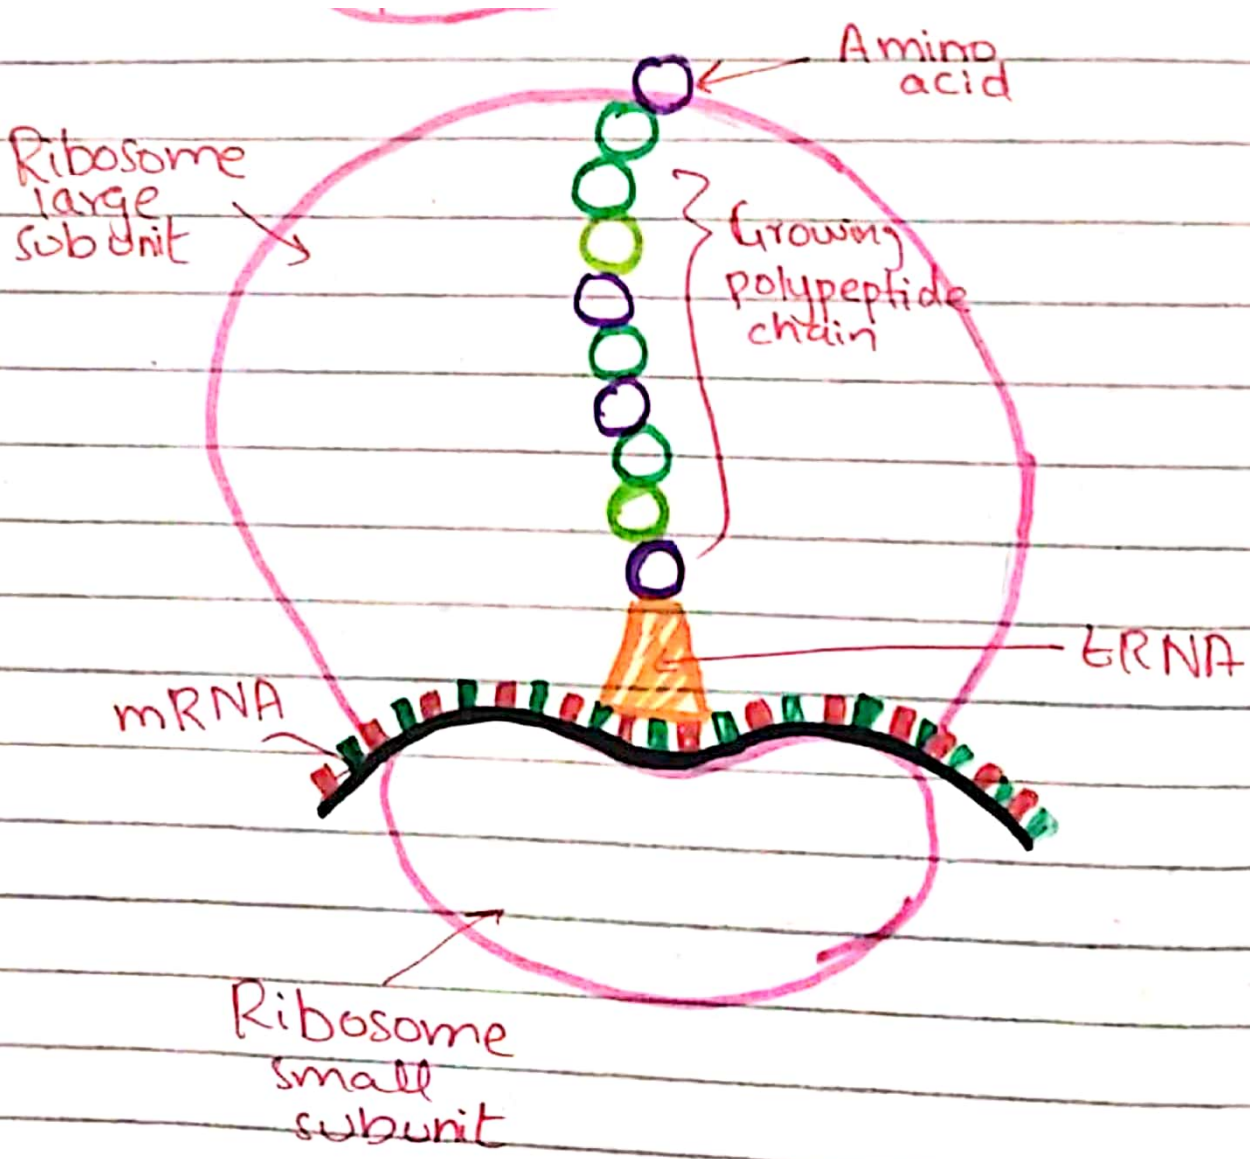 Amino
acid
Ribosome
large
subunit
Growing
polypeptide
chain
tRNA
mRNA
Ribosome
small
subunit